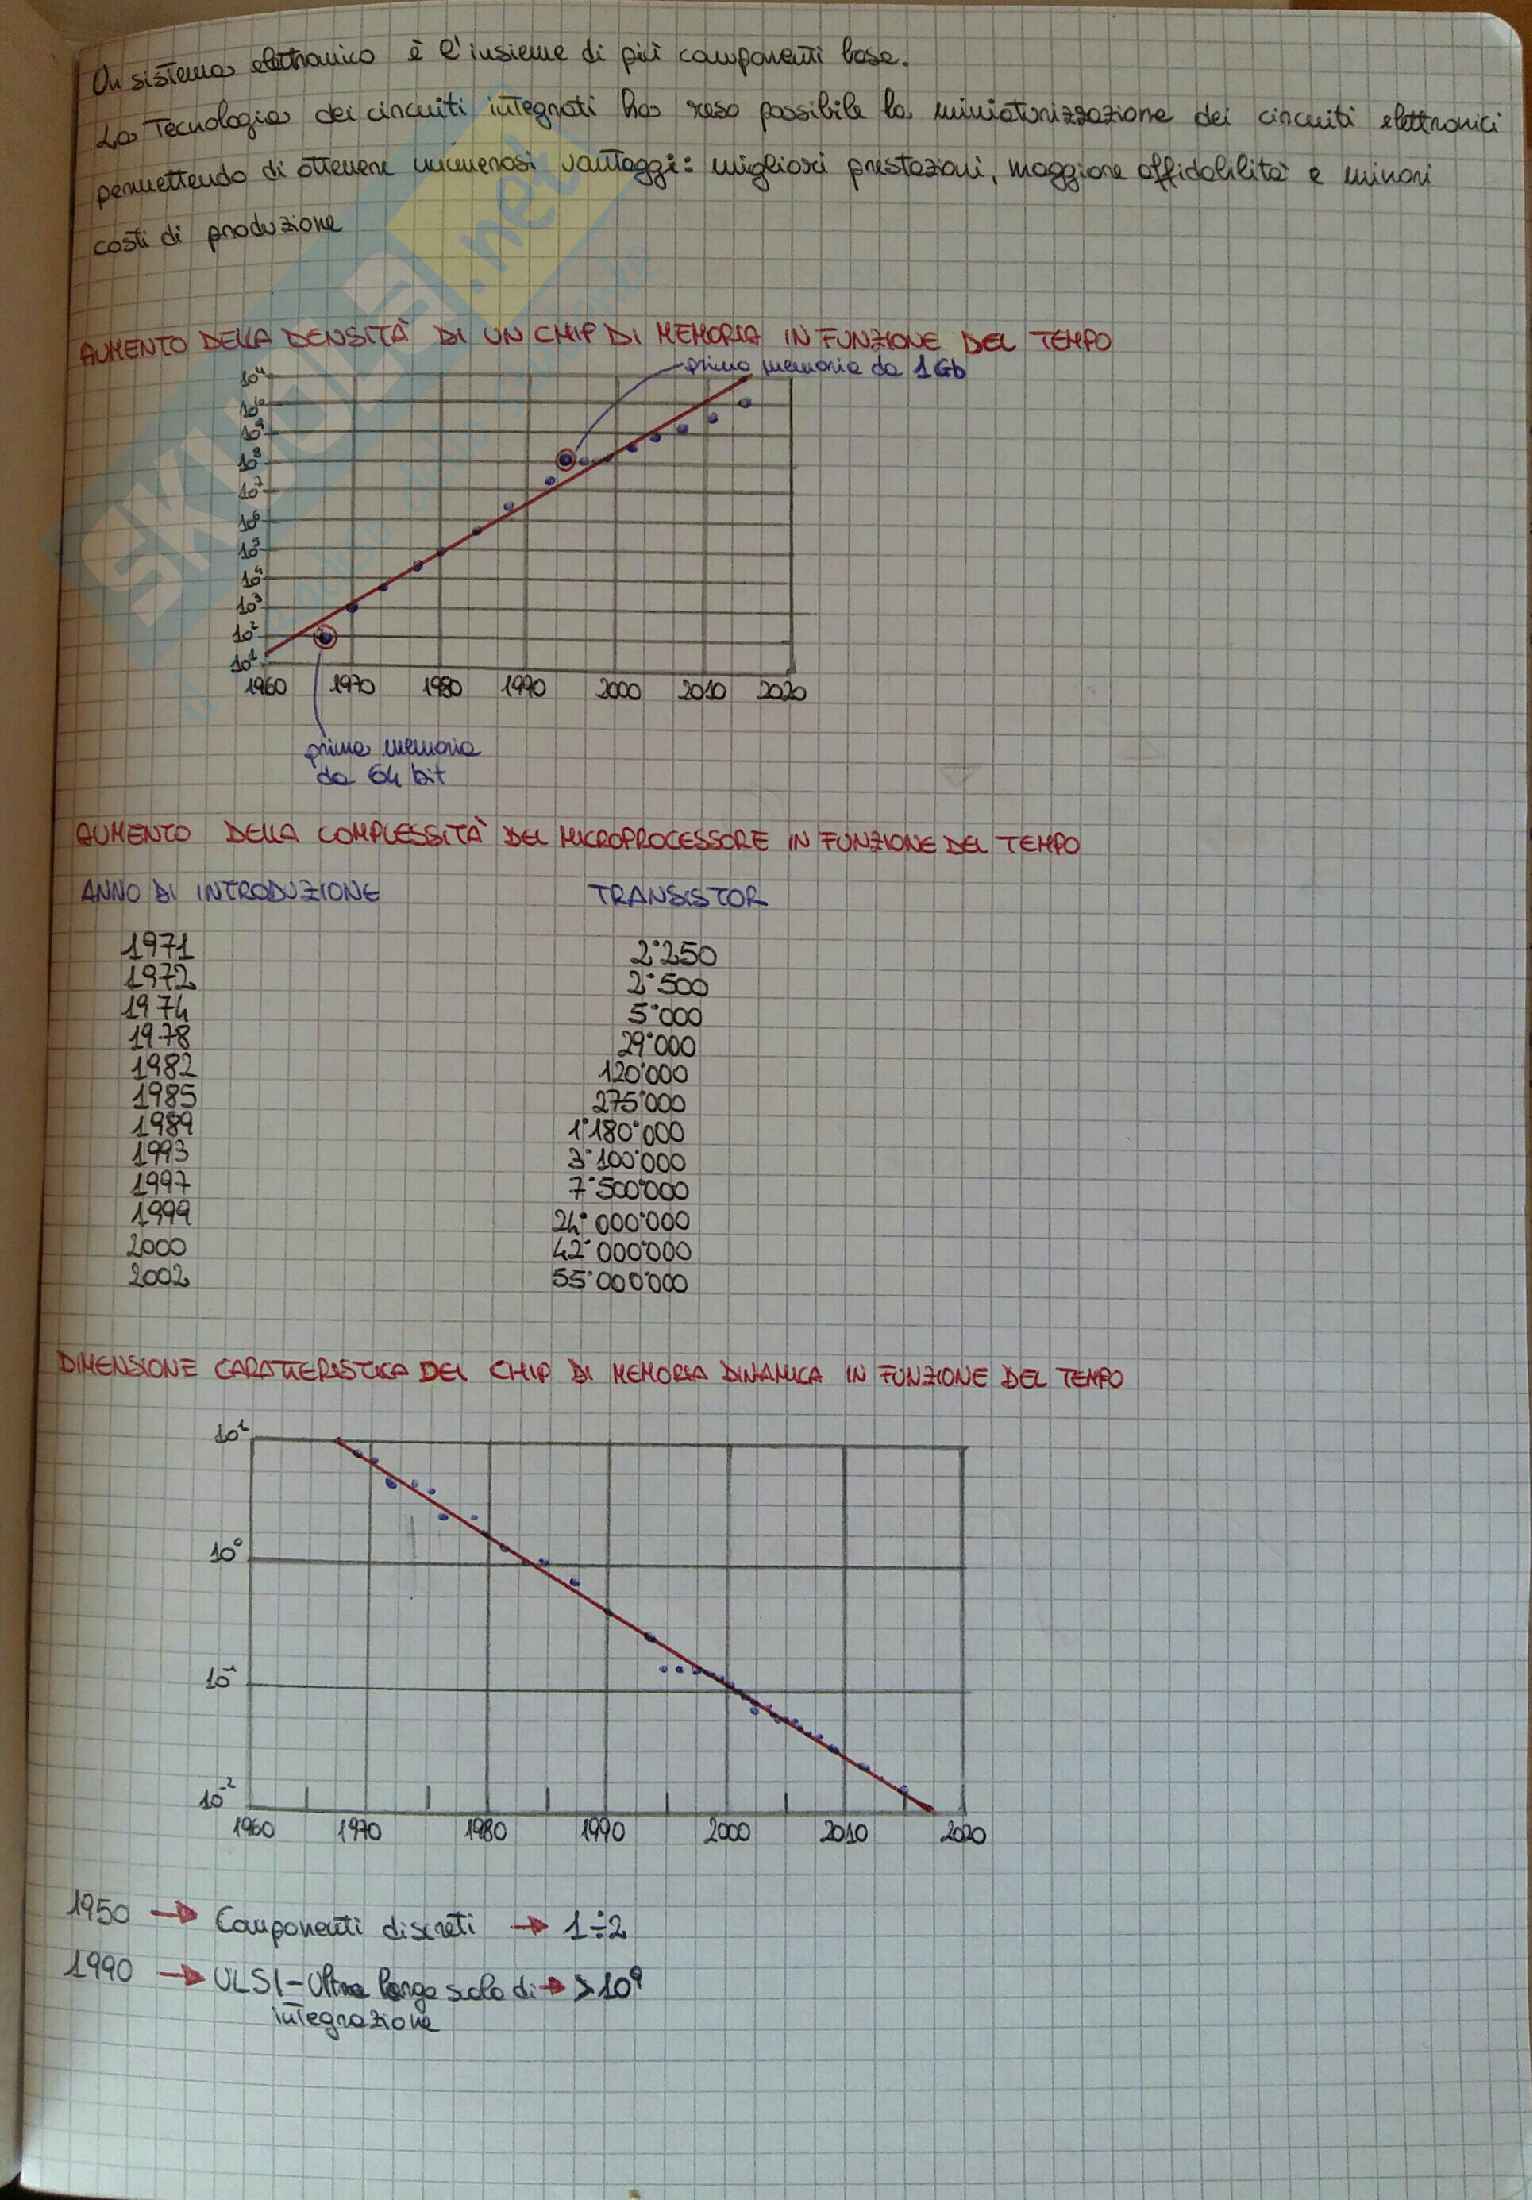 Un sistema elettronico è l'insieme di più componenti base.
La Tecnologia dei circuiti integrati ha reso possibile la miniaturizzazione dei circuiti elettronici
permettendo di ottenere numerosi vantaggi: migliori prestazioni, maggiore affidabilità e minori
costi di produzione
SKUOLA.net
AUMENTO DELLA DENSITÀ DI UN CHIP DI MEMORIA IN FUNZIONE DEL TEMPO
prima memoria da 1Gb
10⁹
10⁸
10⁷
10⁶
10⁵
10⁴
10³
10²
10¹
1960 1970 1980 1990 2000 2010 2020
prima memoria
da 64 bit
AUMENTO DELLA COMPLESSITÀ DEL MICROPROCESSORE IN FUNZIONE DEL TEMPO
ANNO DI INTRODUZIONE TRANSISTOR
1971 2°250
1972 2°500
1974 5°000
1978 29°000
1982 120°000
1985 275°000
1989 1°180°000
1993 3°100°000
1997 7°500°000
1999 24°000°000
2000 42°000°000
2002 55°000°000
DIMENSIONE CARATTERISTICA DEL CHIP DI MEMORIA DINAMICA IN FUNZIONE DEL TEMPO
10¹
10⁰
10⁻
10⁻²
1960 1970 1980 1990 2000 2010 2020
1950 → Componenti discreti → 1÷2
1990 → ULSI - Ultra larga scala di → >10⁹
integrazione